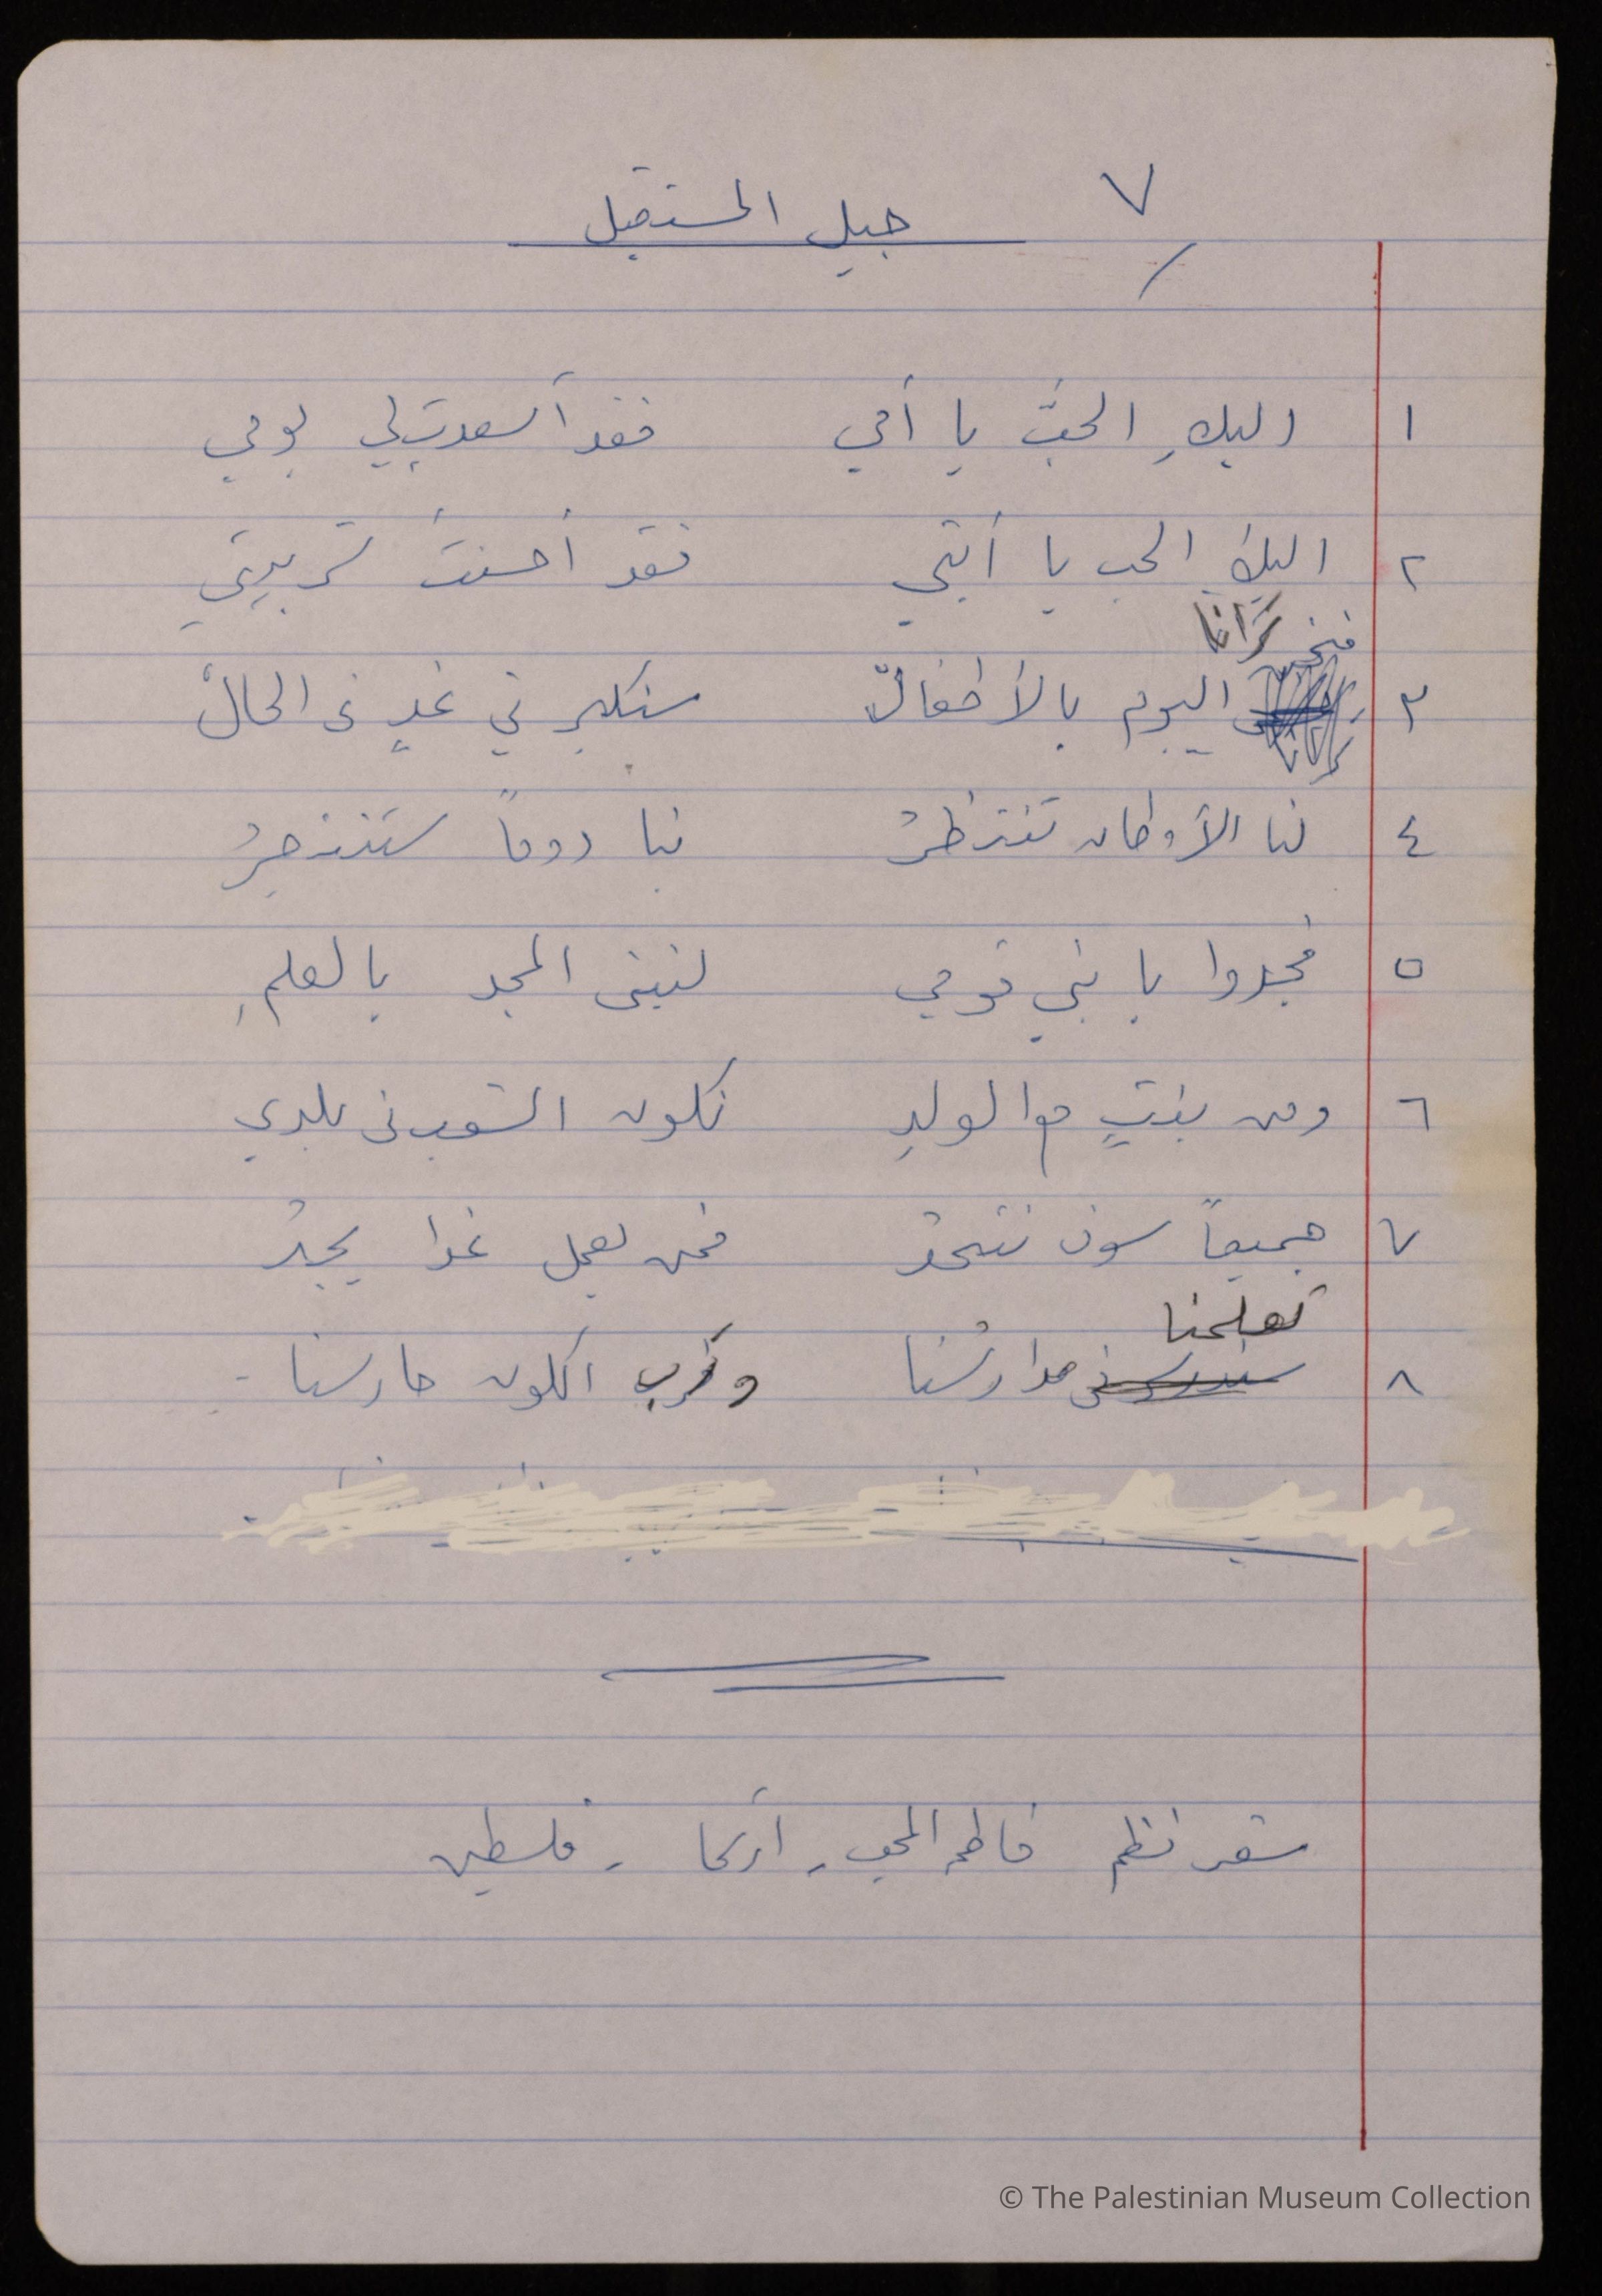 ٧
جيل المستقبل
١ اليكِ الحبَّ يا أمي فقد أسعدتِ لي يومي
٢ اليك الحب يا أبتي فقد أحسنتَ تربيتي
فنحن ترانا
٣ اليوم بالأطفالْ سنكبر في غدٍ في الحالْ
٤ لنا الأوطان تنتظرُ بنا دوماً ستفتخرُ
٥ فجدوا يا بني قومي لنبني المجد بالعلمِ
٦ ومن بنتٍ مع الولدِ نكون الشعب في بلدي
٧ جميعاً سوف نتحدُ فمن يعمل غدا يجدُ
تعلمنا
٨ مدارسُنا وربُ الكون حارسنا -
شعر نظم فاطمة المحب - أريحا - فلسطين
© The Palestinian Museum Collection